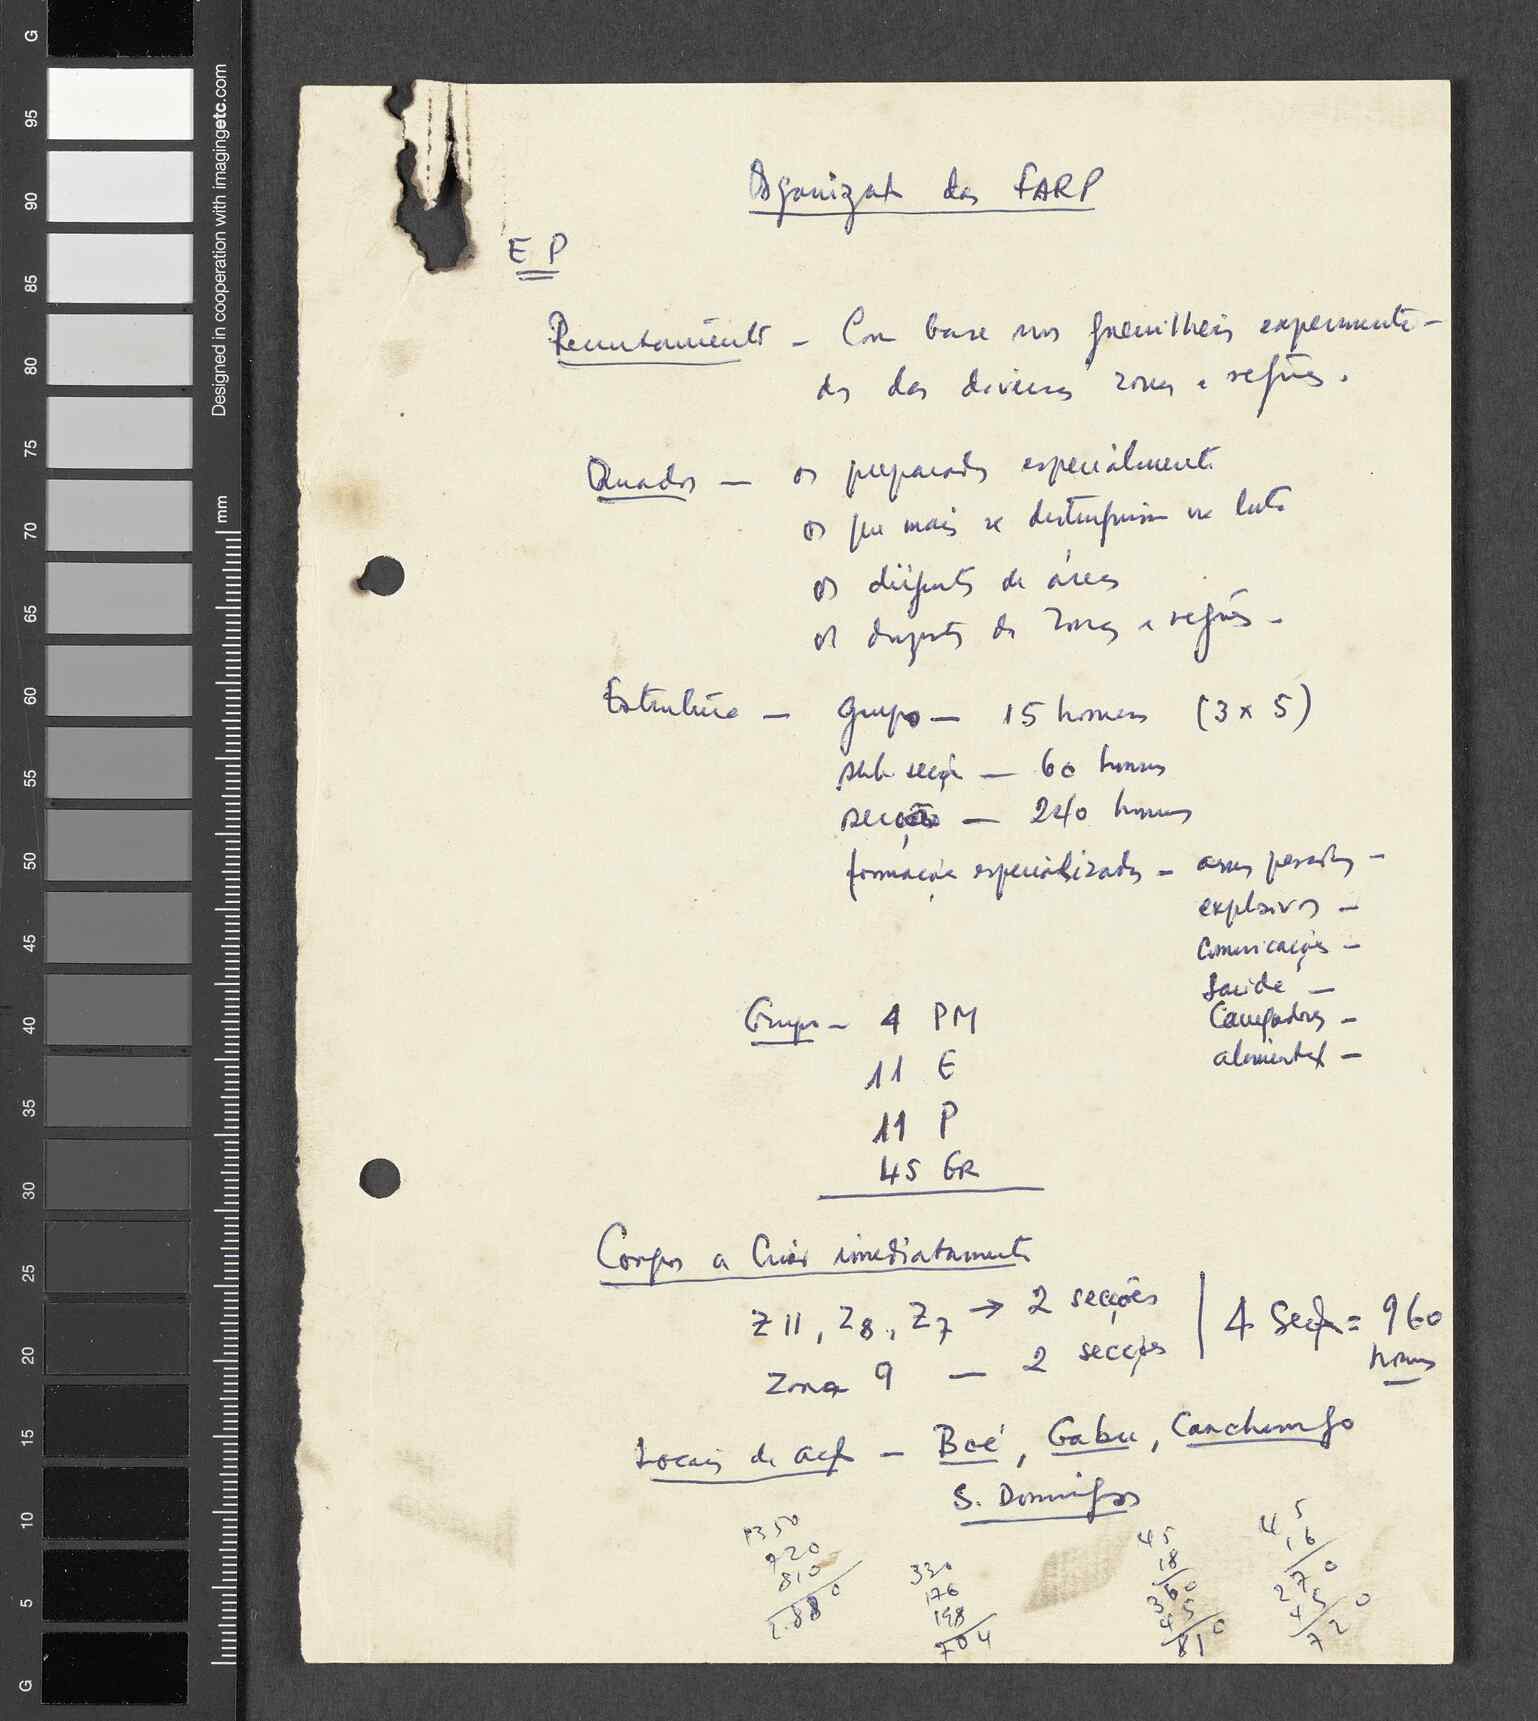 Organizaç das FARP
E P
Recrutamento - Com base nos guerrilheiros experimenta-
dos das diversas zonas e regiões.
Quadros - os preparados especialmente
os que mais se distinguiram na luta
os dirigentes de áreas
os dirigentes de zonas e regiões -
Estrutura - grupo - 15 homens (3 x 5)
sub secção - 60 homens
secção - 240 homens
formação especializados - armas pesadas -
explosivos -
comunicações -
Saúde -
Carregadores -
alimentaç -
Grupo - 4 PM
11 E
11 P
45 GR
Corpos a Criar imediatamente
Z 11, Z 8, Z 7 → 2 secções | 4 Secç = 960
homens
Zona 9 - 2 secções
Locais de acç - Boé, Gabu, Canchungo
S. Domingos
1350
720
810
2.880
330
176
198
704
45
18
360
45
810
45
16
270
45
720
G
95
90
85
80
75
70
65
60
55
50
45
40
35
30
25
20
15
10
5
G
mm
Designed in cooperation with imagingetc.com